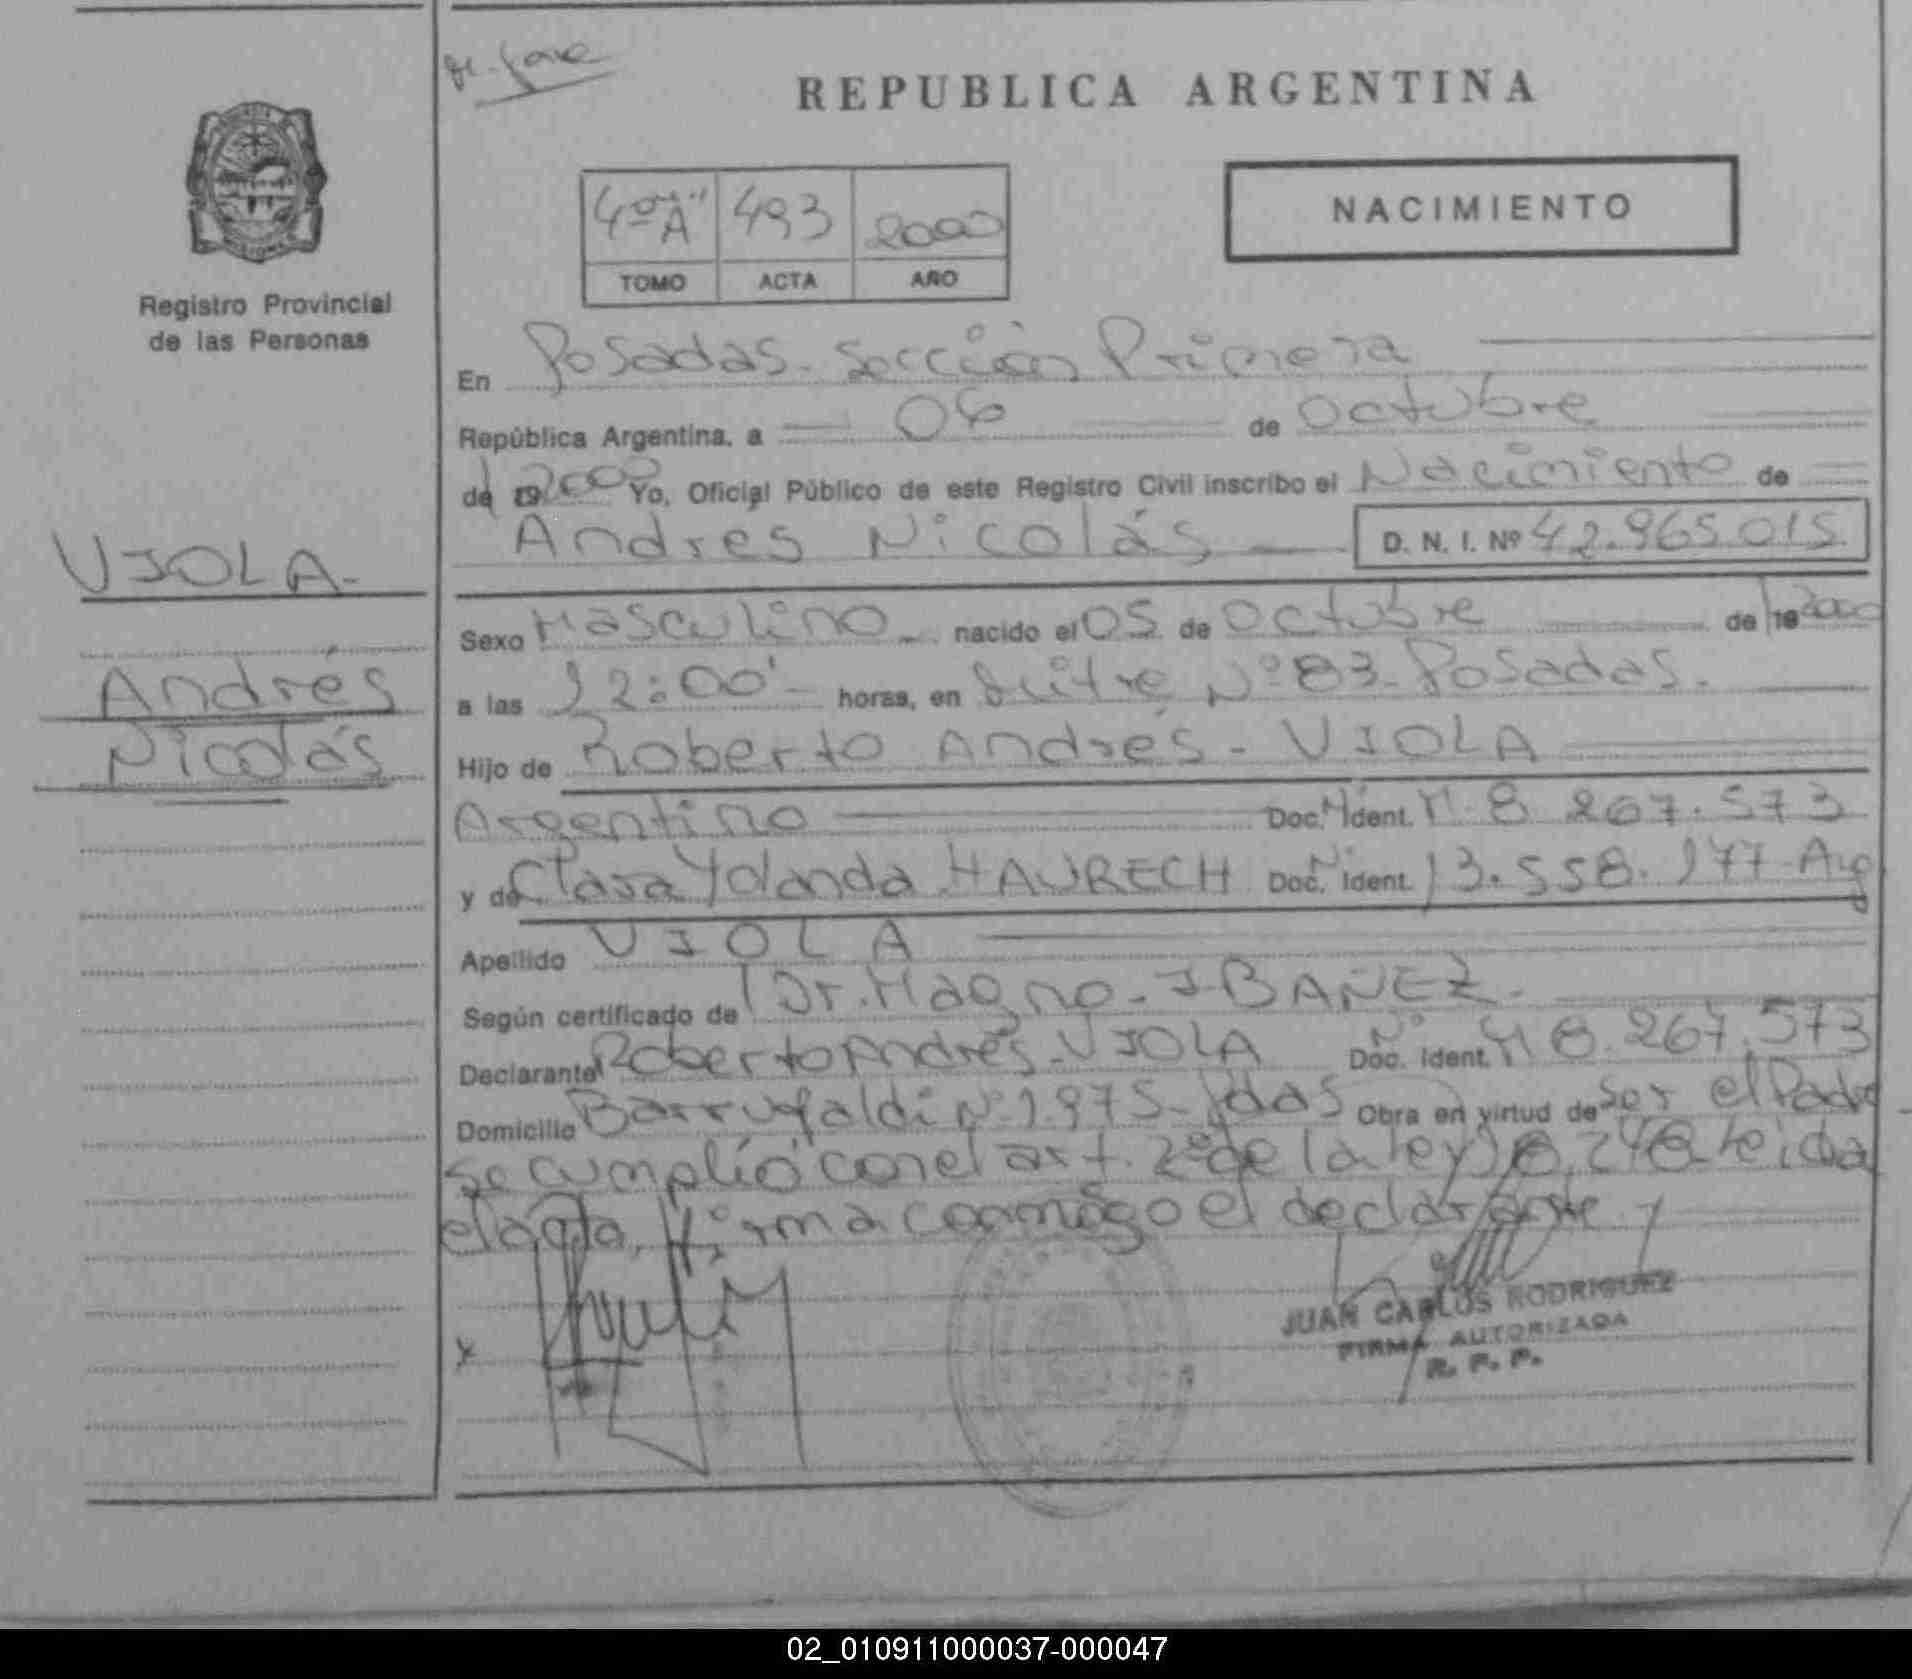 REPUBLICA ARGENTINA
4º "A" 493 2000
TOMO ACTA AÑO
NACIMIENTO
Registro Provincial
de las Personas
VIOLA.
Andrés
Nicolás
En Posadas. Sección Primera
República Argentina, a 06 de Octubre
de 19 2000 Yo, Oficial Público de este Registro Civil inscribo el Nacimiento de
Andres Nicolás D. N. I. Nº 42.965.015
Sexo Masculino nacido el 05 de Octubre de 19 2000
a las 12:00' horas, en Mitre Nº 83 - Posadas.
Hijo de Roberto Andrés - VIOLA
Argentino Doc. Nº Ident. M. 8.267.573
y de Clara Yolanda HAURECH Doc. Nº Ident. 13.558.177 Arg
Apellido VIOLA
Según certificado de Dr. Magno - IBAÑEZ.
Declarante Roberto Andrés - VIOLA Doc. Nº Ident. M 8.267.573
Domicilio Barrufaldi Nº 1.975 - Pdas Obra en virtud de Ser el Padre
se cumplió con el art. 2º de la ley 18.248. Leida
el acta, firma conmigo el declarante
x
JUAN CARLOS RODRIGUEZ
FIRMA AUTORIZADA
R. P. P.
02_010911000037-000047